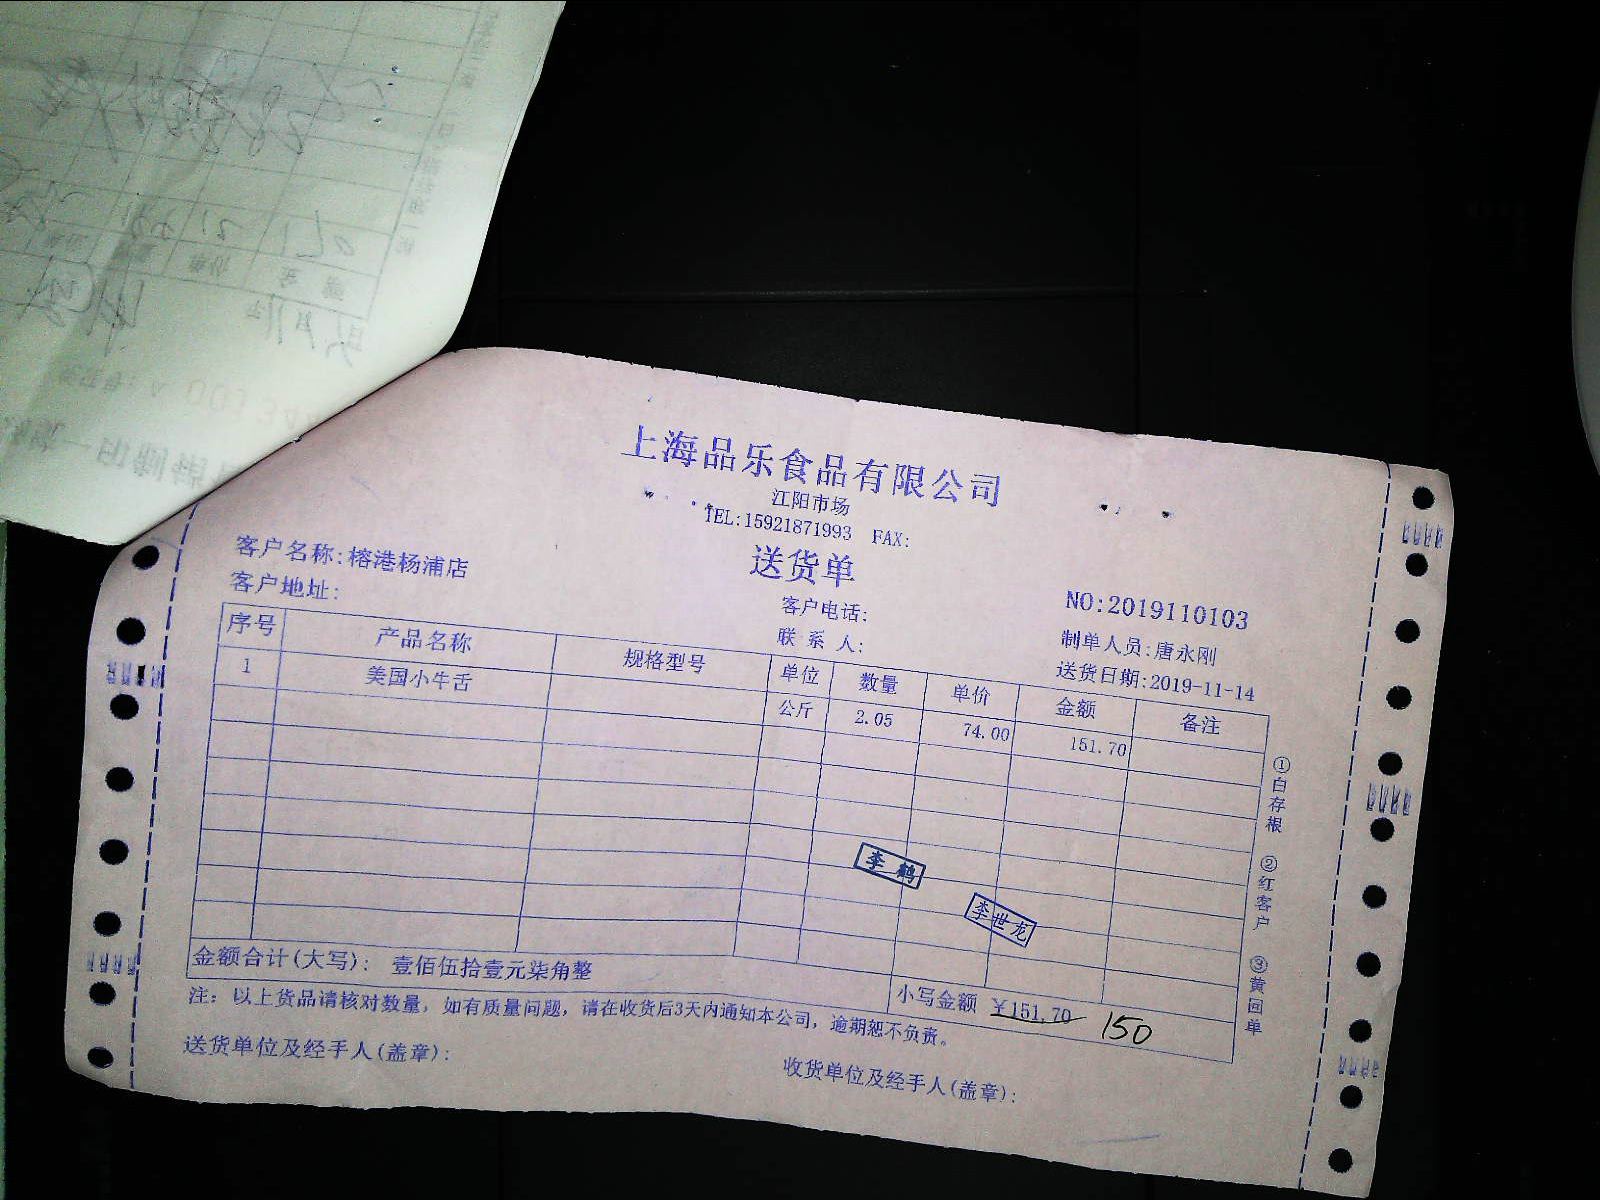 上海品乐食品有限公司
江阳市场
TEL:15921871993 FAX:
送货单
客户名称:榕港杨浦店
客户地址:
客户电话:
联系人:
NO:2019110103
制单人员:唐永刚
送货日期:2019-11-14
序号 产品名称 规格型号 单位 数量 单价 金额 备注
1 美国小牛舌 公斤 2.05 74.00 151.70
李鹤
李世龙
①白存根 ②红客户 ③黄回单
金额合计(大写): 壹佰伍拾壹元柒角整
小写金额 ¥151.70 150
注: 以上货品请核对数量, 如有质量问题, 请在收货后3天内通知本公司, 逾期恕不负责。
送货单位及经手人(盖章):
收货单位及经手人(盖章):